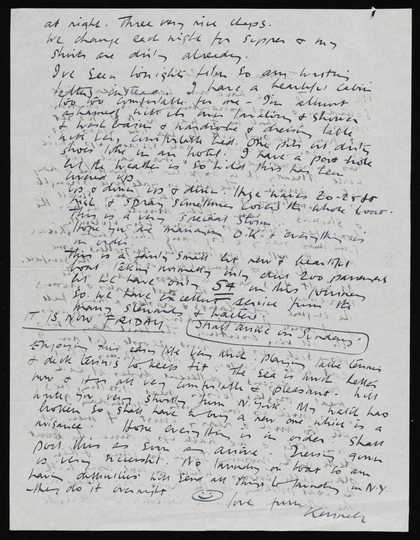 at night. Three very nice chaps.
We change each night for supper & my
shirts are dirty already.
I've seen tonight's film so am writing
letters instead. I have a beautiful cabin
too too comfortable for one - I'm almost
ashamed with its own lavatory & shower
& wash basin & wardrobe & dressing table
with very comfortable bed. One puts out dirty
shoes like in an hotel. I have a port hole
but the weather is so wild this has been
covered up.
Up & down, up & down. Huge waves 20-25 ft
high & spray sometimes covers the whole boat.
This is a very special storm.
Hope you are managing O.K. & everything is
in order.
This is a fairly small but new & beautiful
boat. Taking normally only about 200 passengers
but we have only 54 on this journey
so we have excellent service from the
many stewards & waiters.
IT IS NOW FRIDAY Shall arrive on Sunday.
Enjoying this easy life very much. Playing table tennis
& deck tennis to keep fit. The sea is much better
now & it is all very comfortable & pleasant. Will
write you very shortly from N. York. My watch has
broken so shall have to buy a new one which is a
nuisance. Hope everything is in order. Shall
post this as soon as arrive. Dressing gown
is very successful. No laundry on boat so am
having difficulties will send all things to laundry in NY
- they do it overnight.
love from
Kenneth